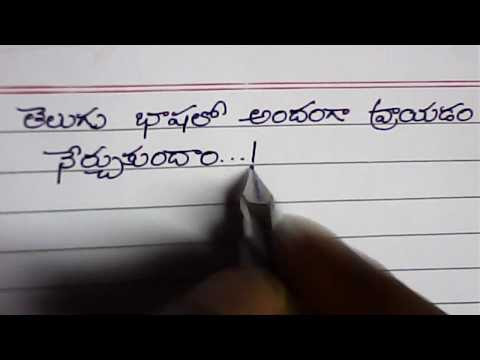 తెలుగు భాషలో అందంగా వ్రాయడం
నేర్చుకుందాం...!